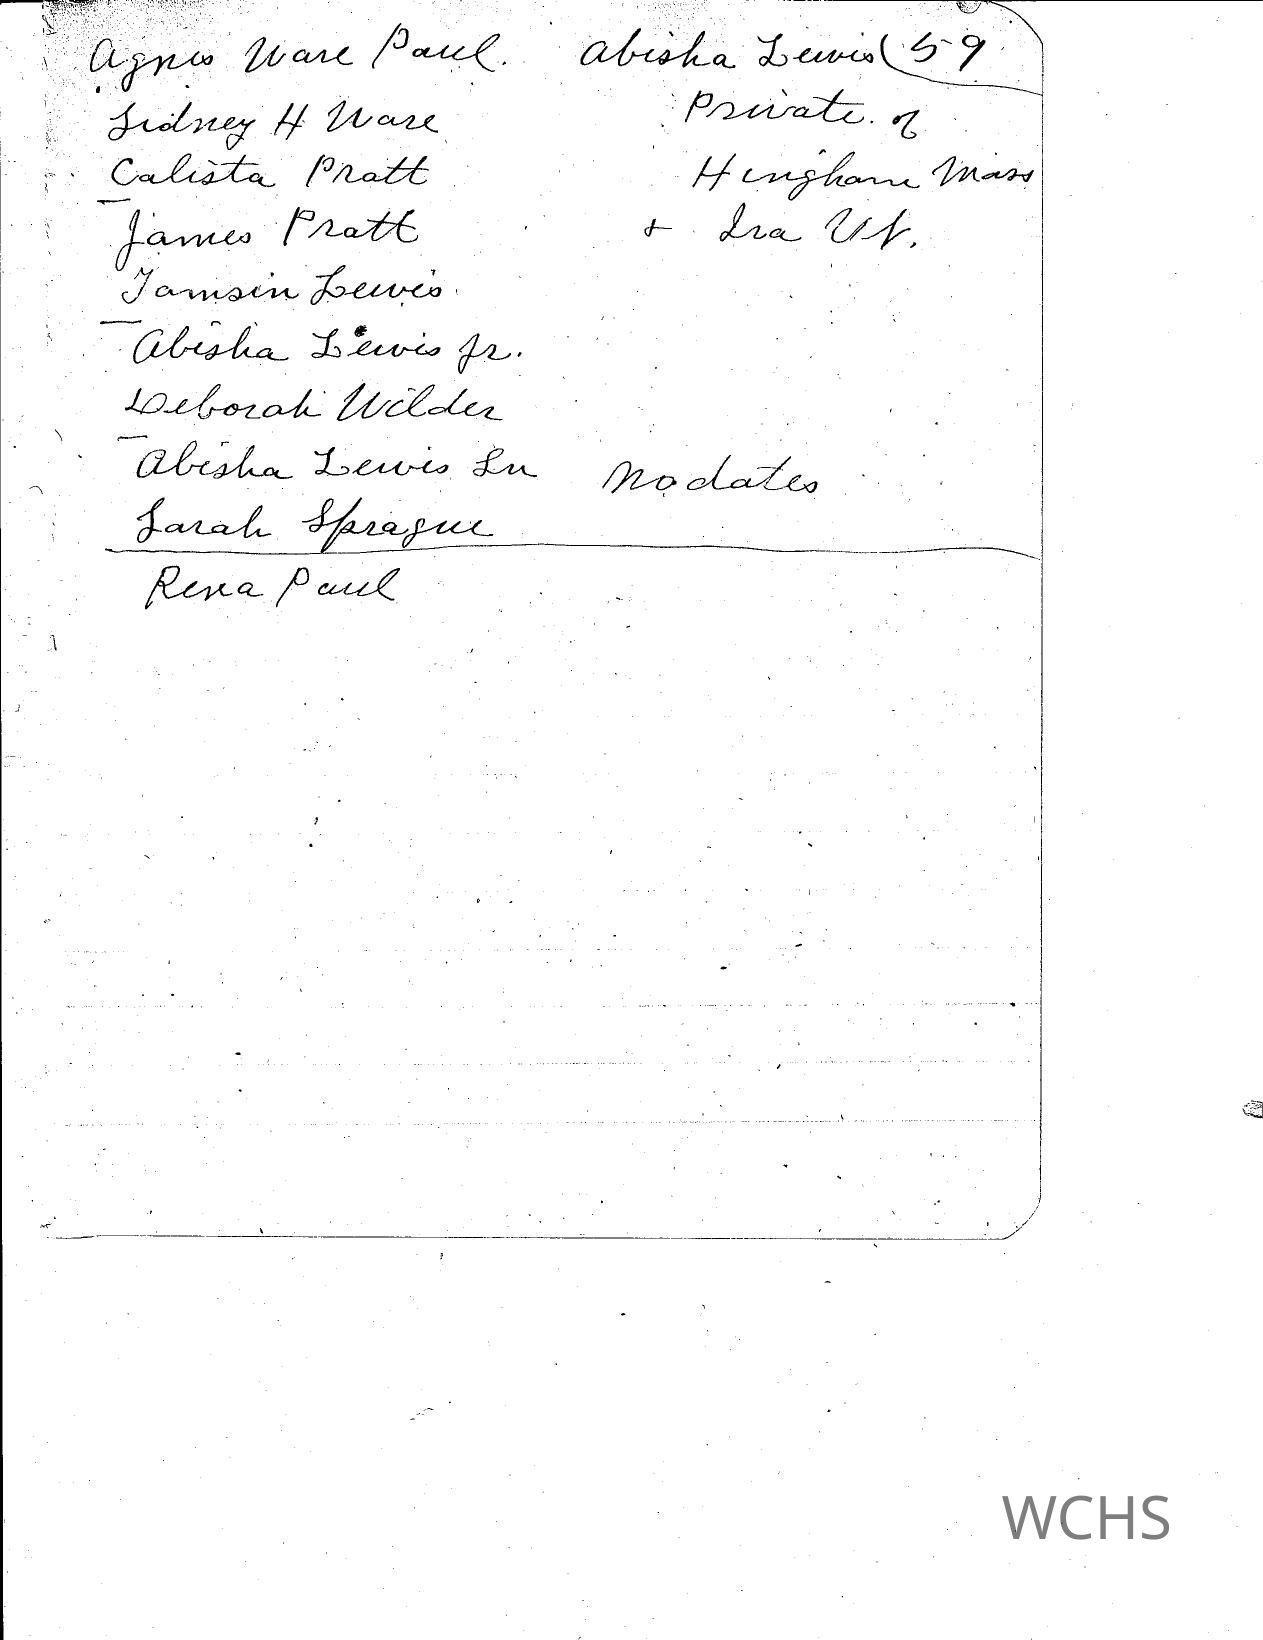 Agnes Ware Paul. Abisha Lewis 59
Sidney H Ware Private. of
Calista Pratt Hingham Mass
James Pratt + Ira Vt.
Tamsin Lewis.
Abisha Lewis Jr.
Deborah Wilder
Abisha Lewis Sn No dates
Sarah Sprague
Rena Paul
WCHS